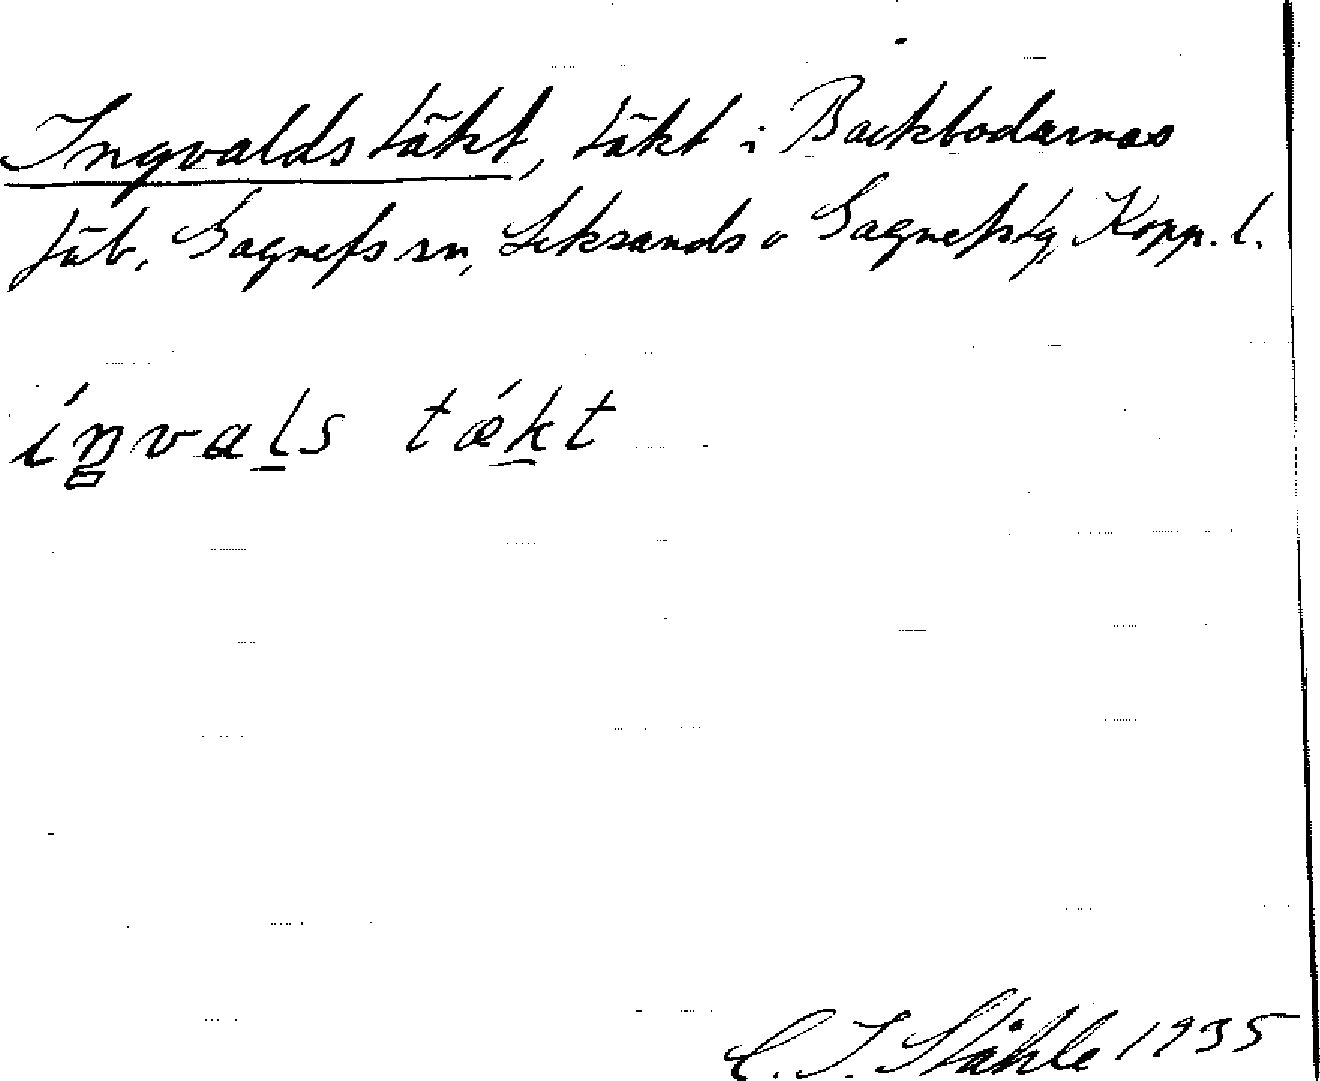 Ingvalds täkt, täkt i Backbodarnas
fäb. Gagnefs sn, Leksands o Gagnefs tg, Kopp. l.
íŋvals tǽkt
C. I. Ståhle 1935